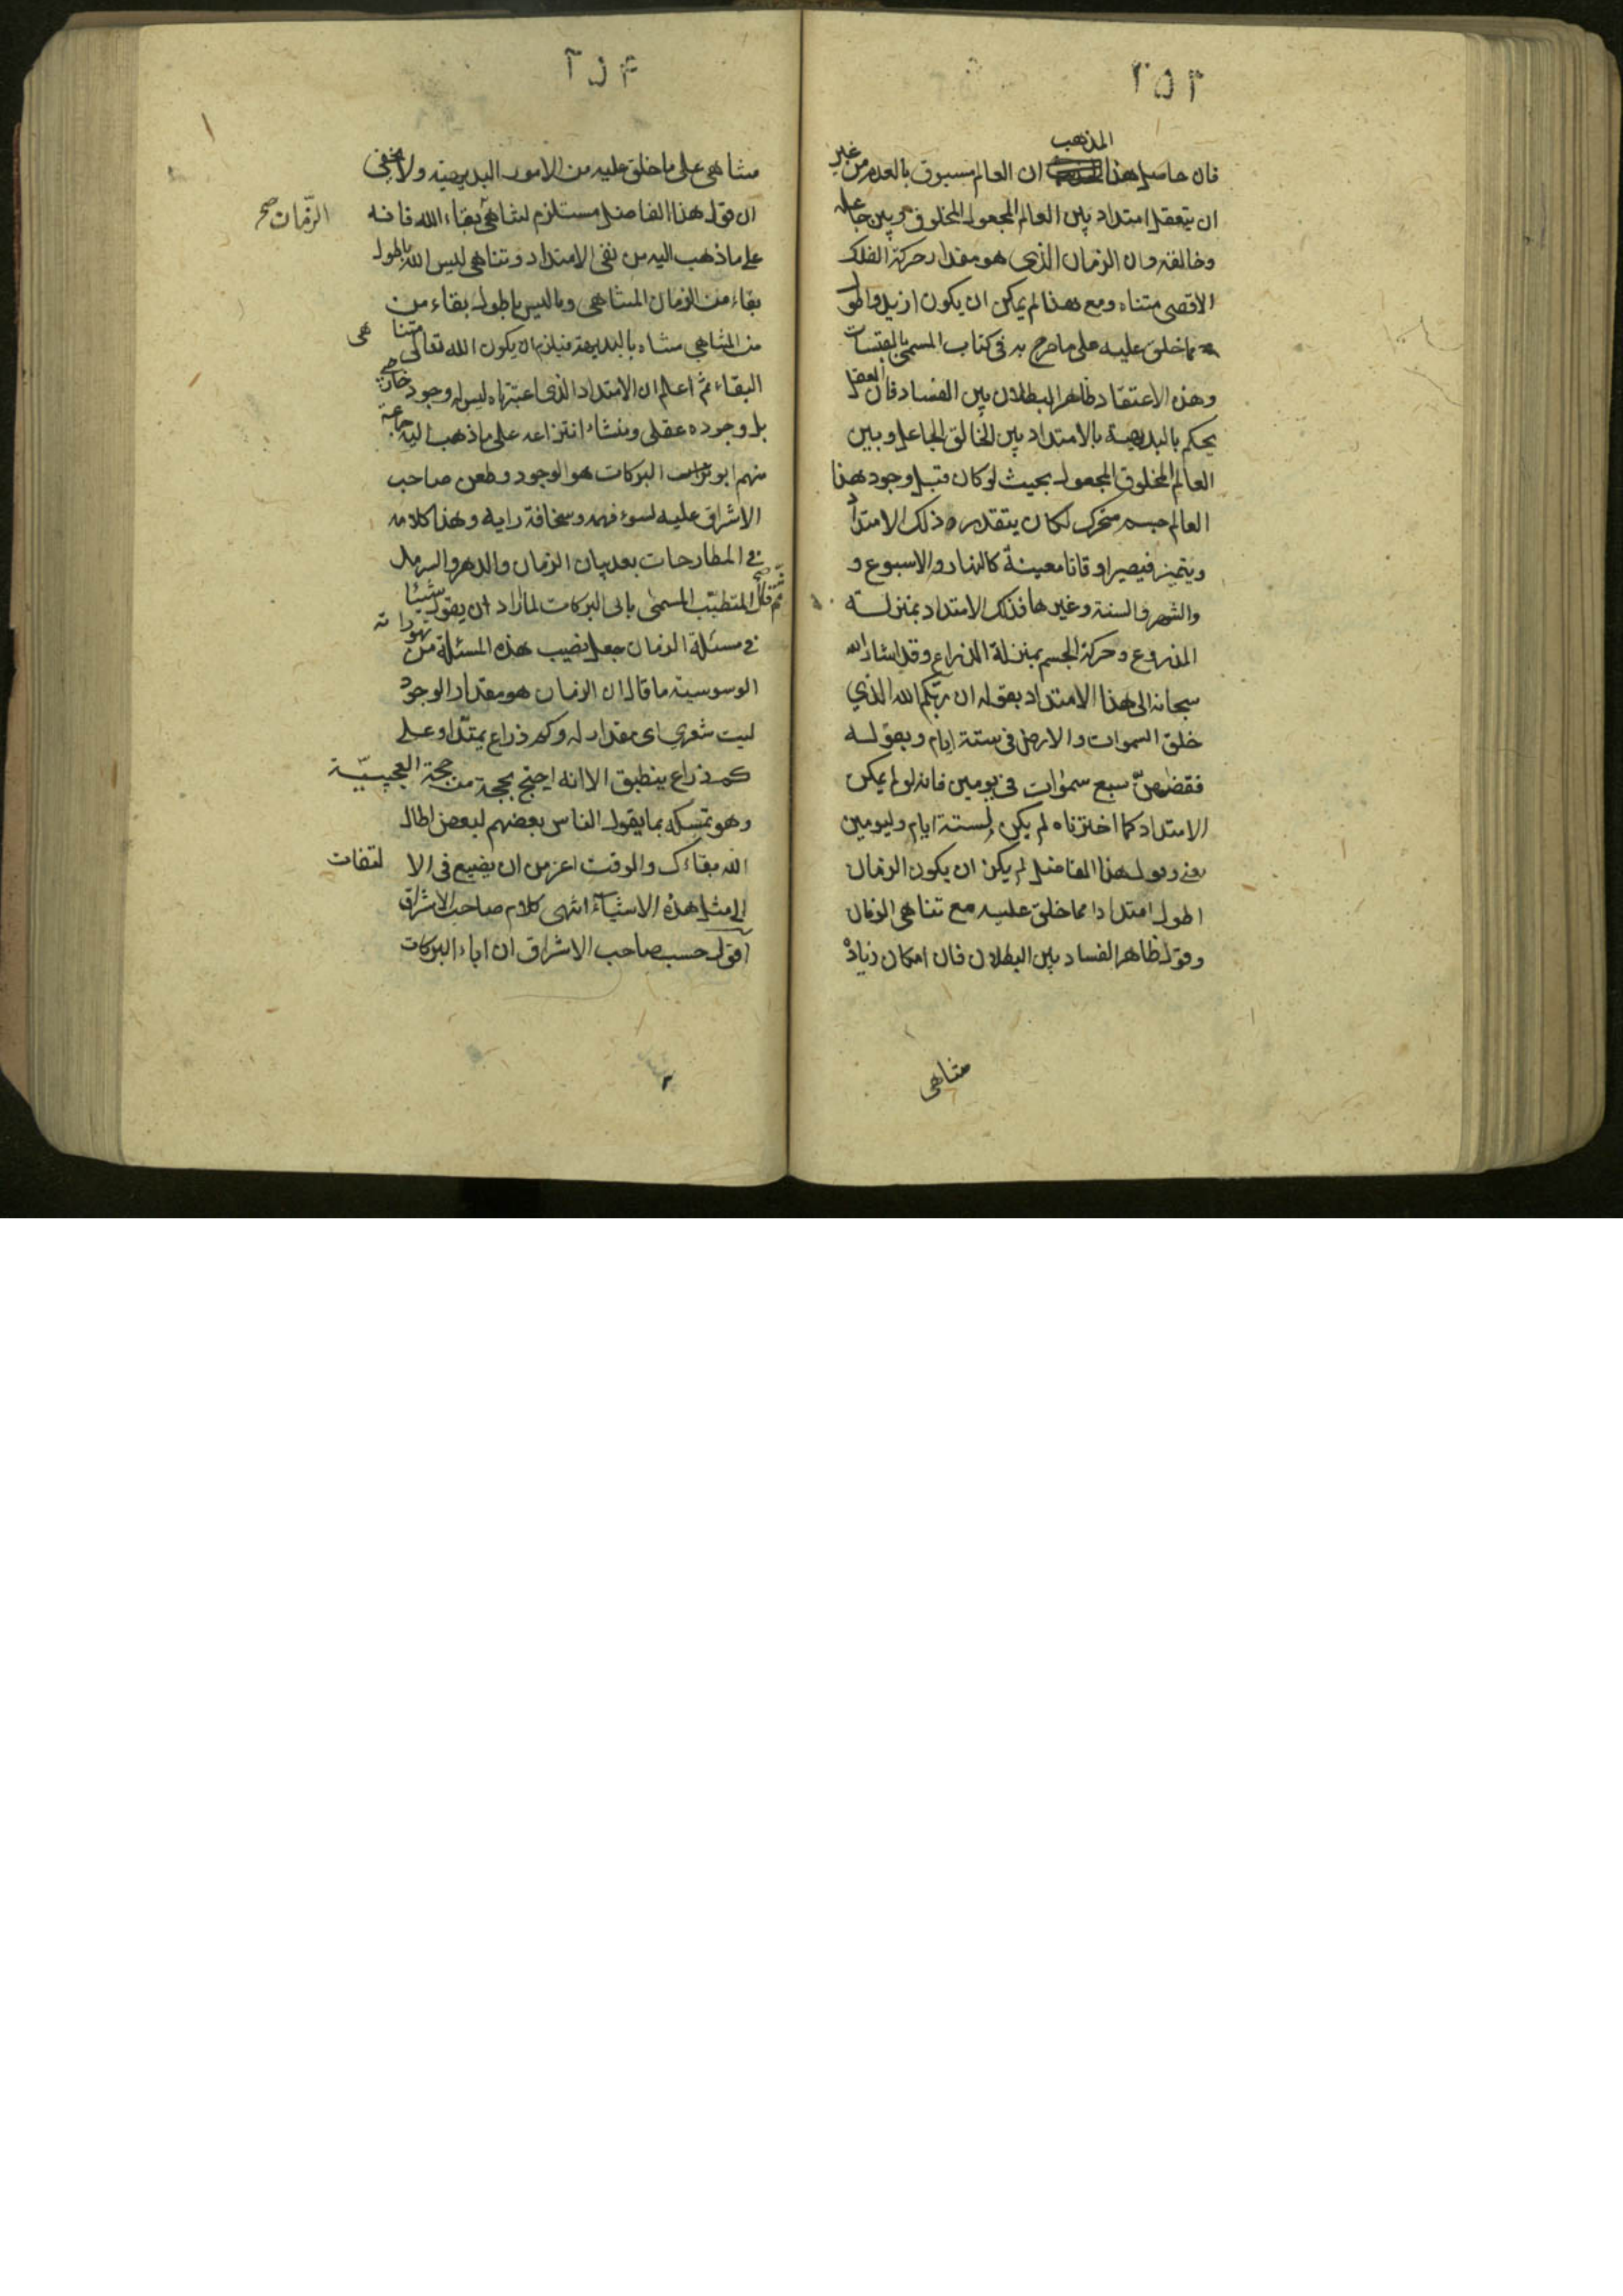 ٢٥٣
فان حاصل هذا المذهب ان العالم مسبوق بالعدم من غير
ان يتعقل امتداد بين العالم المجعول المخلوق وبين جاعله
وخالقه وان الزمان الذى هو مقدار حركة الفلك
الاقصى متناه ومع هذا لم يمكن ان يكون ازيد واطول
مما خلق عليه على ما صرح به فى كتاب المسمى بالقبسات
وهذا الاعتقاد ظاهر البطلان بين الفساد فان العقل
يحكم بالبديهية بالامتداد بين الخالق الجاعل وبين
العالم المخلوق المجعول بحيث لو كان قبل وجود هذا
العالم جسم متحرك لكان يتقدر به ذلك الامتداد
ويتميز فيصير اوقاتا معينة كالنهار والاسبوع و
والشهر والسنة وغيرها فذلك الامتداد بمنزلة
المذروع وحركة الجسم بمنزلة الذراع وقد اشار الله
سبحانه الى هذا الامتداد بقوله ان ربكم الله الذي
خلق السموات والارض فى ستة ايام وبقوله
فقضهنّ سبع سموات فى يومين فانه لو لم يكن
الامتداد كما اخترناه لم يكن لستة ايام وليومين
هذا الفاضل لم يكن ان يكون الزمان
اطول امتدادا مما خلق عليه مع تناهى الزمان
وقول ظاهر الفساد بين البطلان فان امكان زيادة
متناهى
٢٥٤
متناهى على ما خلق عليه من الامور البديهية ولا يخفى
ان قول هذا الفاضل مستلزم لتناهى بقاء الله فانه
الزمان صح
على ما ذهب اليه من نفى الامتداد وتناهى ليس الله باطول
بقاء من الزمان المتناهى وما ليس باطول بقاء من
من المتناهي متناه بالبديهة فيلزم ان يكون الله تعالى متناهى
البقاء ثم اعلم ان الامتداد الذى اعتبرناه ليس له وجود خارج
بل وجوده عقلى ومنشاء انتزاعه على ما ذهب اليه جماعة
منهم ابو البركات هو الوجود وطعن صاحب
الاشراق عليه لسوء فهمه وسخافة رايه وهذا كلامه
فى المطارحات بعد بيان الزمان والدهر والسرمد
ثم قال المتطبب المسمى بابى البركات لما اراد ان يقول شيئا
فى مسئلة الزمان جعل نصيب هذه المسئلة من تهوراته
الوسوسية ما قال ان الزمان هو مقدار الوجود
ليت شعري اى مقدار له وكم ذراع يمتد او على
كم ذراع ينطبق الا انه احتج بحجة من حججه العجيبيّة
وهو تمسكه بما يقول الناس بعضهم لبعض اطال
الله بقاءك والوقت اعز من ان يضيع فى الا لتفات
الى مثل هذه الاشياء انتهى كلام صاحب الاشراق
اقول حسب صاحب الاشراق ان اباء البركات